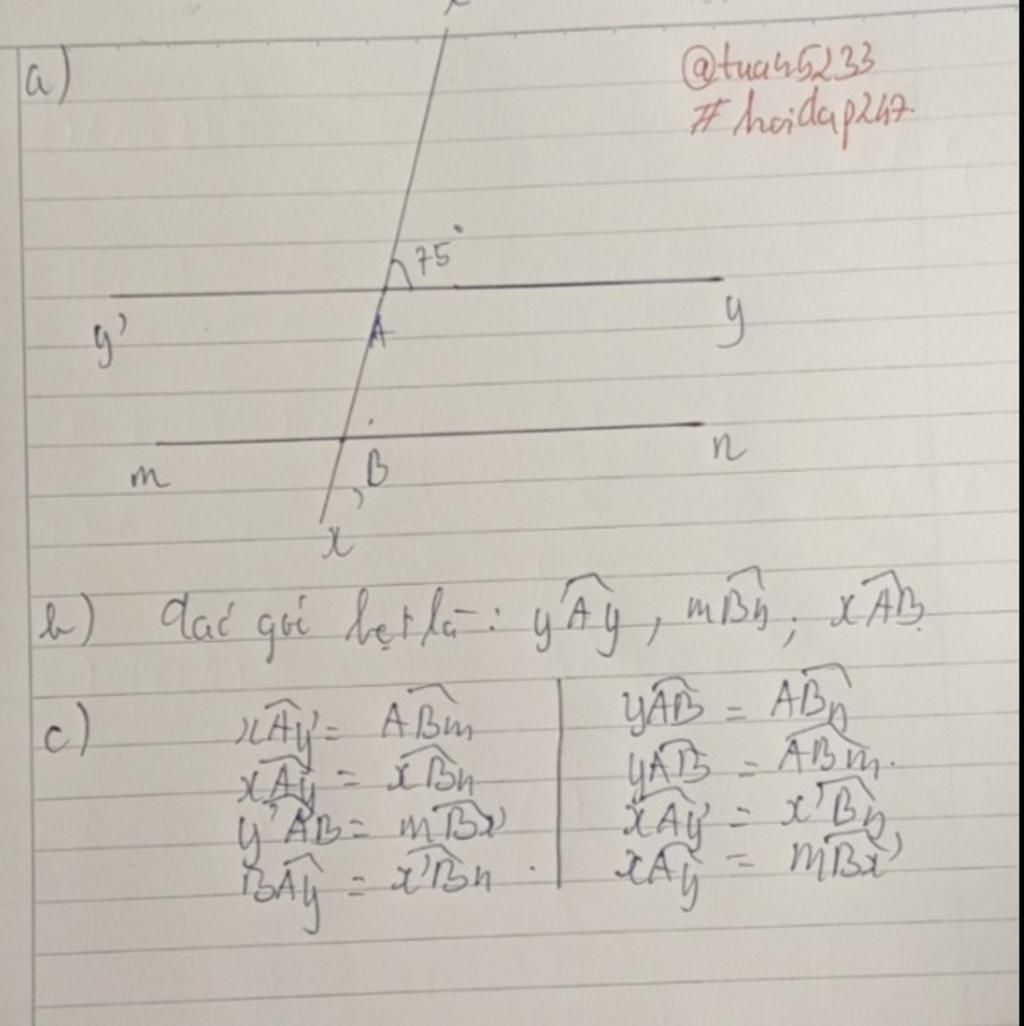 a)
@tuan5233
#hoidap247.
75°
y'
A
y
m
B
n
x'
b) các góc bẹt là: yAy, mBn; xAB
c) xAy' = ABm
xAy = xBn
y'AB = mBx'
BAy = x'Bn.
yAB = ABn
yAB = ABm.
xAy' = x'Bn
xAy = mBx'